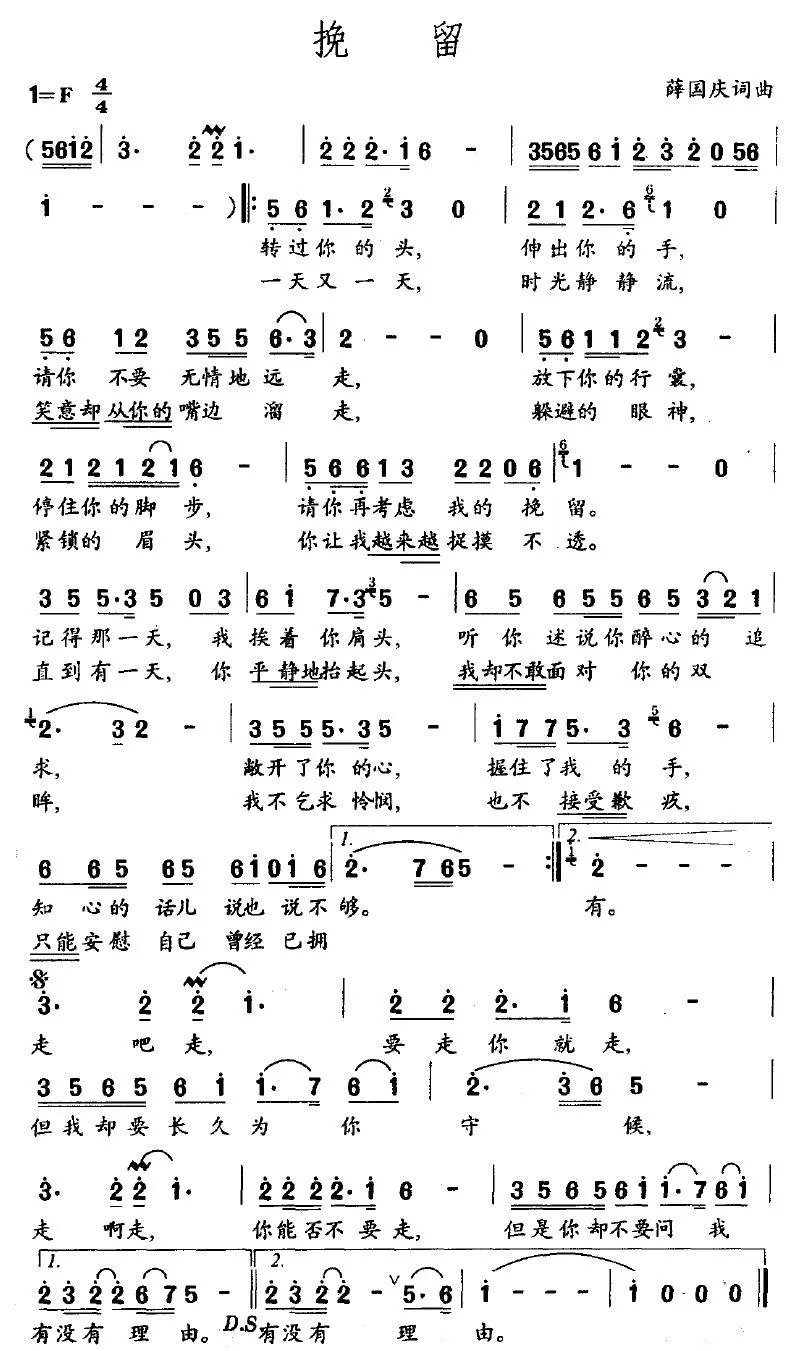 挽 留
1=F 4/4
薛国庆词曲
(5612 3· 2 2 1· | 2 2 2·1 6 - | 3565 6 1 2 3 2 0 56
1 - - - ) ‖: 5 6 1·2 3 0 | 2 1 2·6 1 0
转过你 的 头, 伸出你 的 手,
一天又 一 天, 时光静 静 流,
5 6 1 2 3 5 5 6·3 | 2 - - 0 | 5 6 1 1 2 3 -
请你 不要 无情地远 走, 放下你的行 囊,
笑意却 从你的 嘴边 溜 走, 躲避的 眼 神,
2 1 2 1 2 1 6 - | 5 6 6 1 3 2 2 0 6 | 1 - - 0
停住你的脚 步, 请你再考虑 我的 挽 留。
紧锁的 眉 头, 你让我越来越 捉摸 不 透。
3 5 5·3 5 0 3 | 6 1 7·3 5 - | 6 5 6 5 5 6 5 3 2 1
记得那一天, 我 挨着 你肩头, 听 你 述说你醉心的 追
直到有一天, 你 平静地抬起头, 我却不敢面对 你的 双
2· 3 2 - | 3 5 5 5 5·3 5 - | 1 7 7 5· 3 6 -
求, 敞开了你 的心, 握住了我 的 手,
眸, 我不乞求 怜悯, 也不 接受歉 疚,
6 6 5 6 5 6 1 0 1 6 | 1. 2· 7 6 5 - :‖ 2. 2 - - -
知 心的 话儿 说也 说不 够。 有。
只能安慰 自己 曾经 已拥
3· 2 2 1· | 2 2 2· 1 6 -
走 吧 走, 要 走 你 就 走,
3 5 6 5 6 1 1· 7 6 1 | 2· 3 6 5 -
但我却要长久为 你 守 候,
3· 2 2 1· | 2 2 2 2·1 6 - | 3 5 6 5 6 1 1·7 6 1
走 啊走, 你能否不 要走, 但是你却不要问 我
1. 2 3 2 2 6 7 5 - ‖ 2. 2 3 2 2 - ∨ 5·6 | 1 - - - | 1 0 0 0 ‖
有没有 理 由。 D.S. 有没有 理 由。